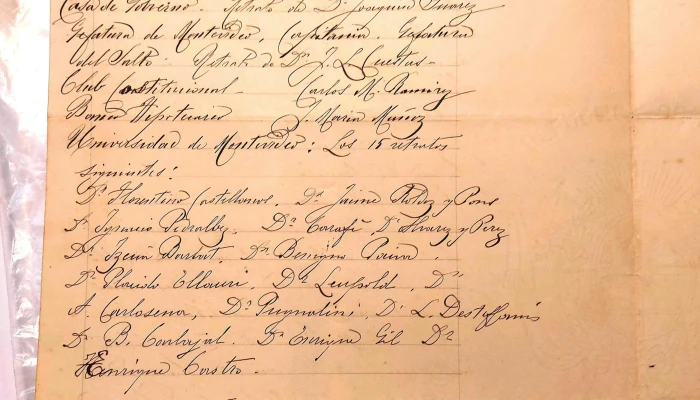 Casa de Gobierno. Retrato de Dn Joaquin Suarez
Gefatura de Montevideo, Capitania. Gefatura
del Salto. Retrato de Dn J. L. Cuestas -
Club Constitucional - Carlos M. Ramirez
Banco Hipotecario J. Maria Muñoz
Universidad de Montevideo: Los 15 retratos
siguientes:
Dr Florentino Castellanos. Dn Jaime Roldoz y Pons
Dr Ignacio Pedralbez. Dr Carafí, Dr Alvarez y Perez
Dr Barbat. Dn Benigno
Dr Placido Ellauri. Dr Leopold. Dr
A. Carlosena, Dr Pugnalini, Dr L. Destéffanis
Dr B. Carbajal. Dr Enrique Gil Dr
Henrique Castro -